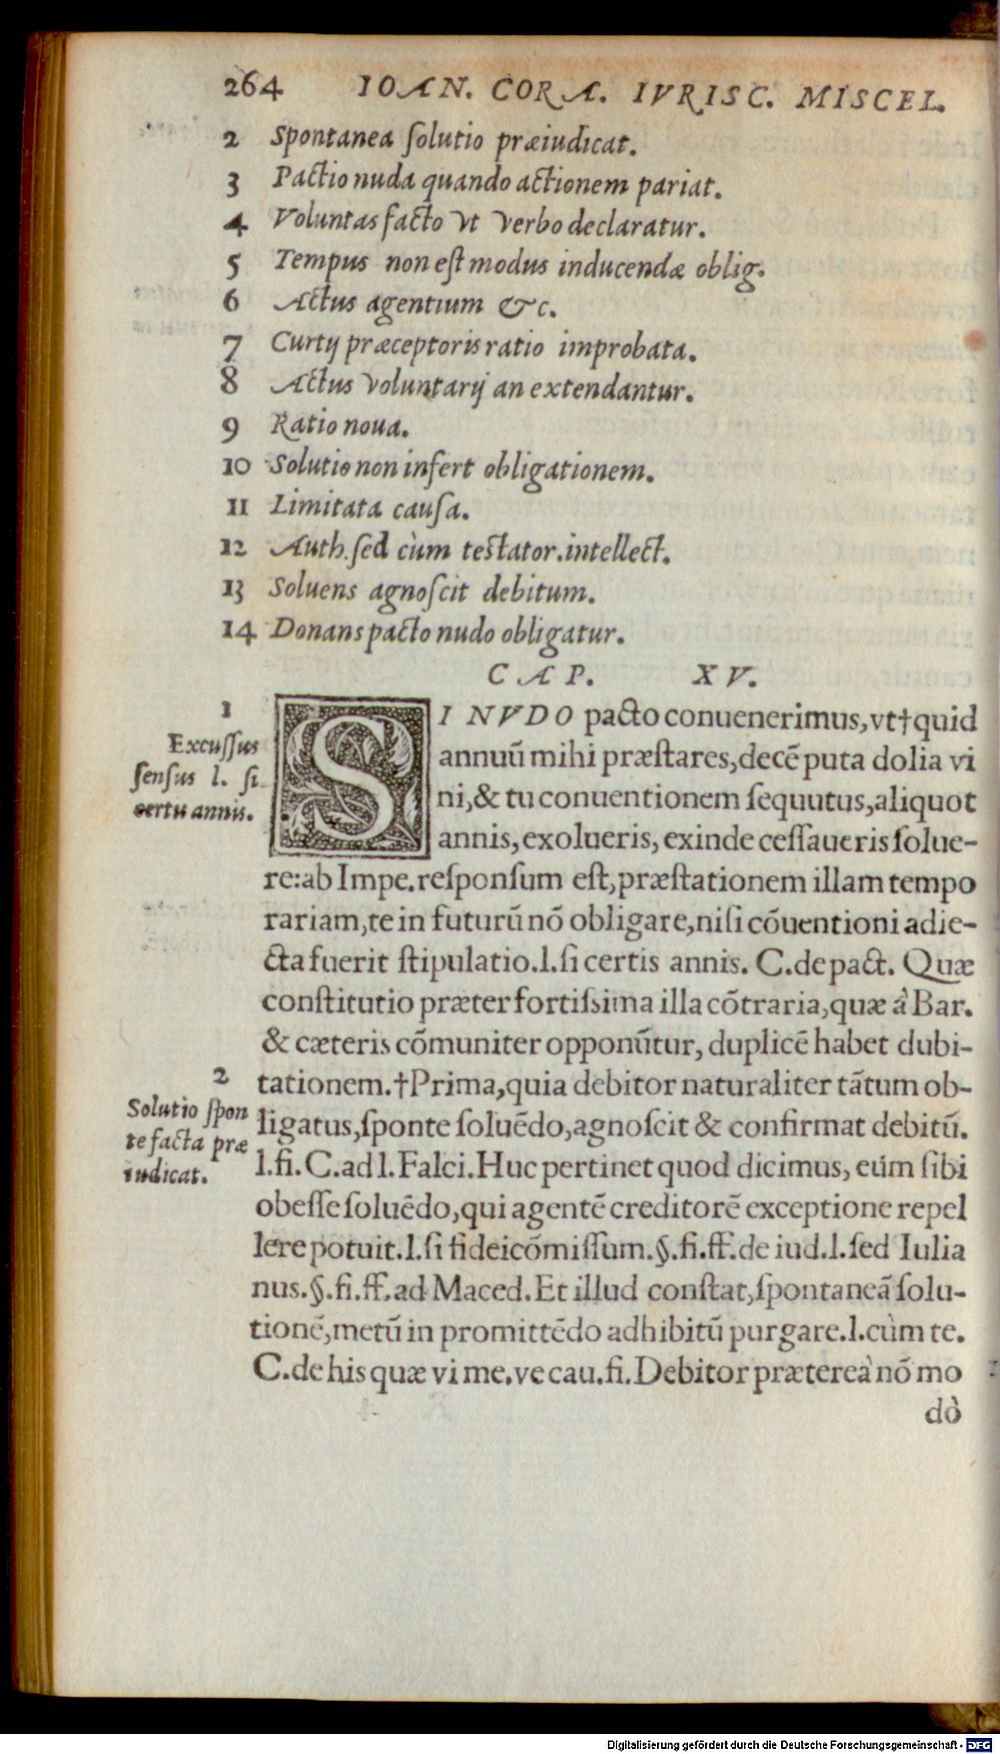 264 IOAN. CORA. IVRISC. MISCEL.
2 Spontanea ſolutio præiudicat.
3 Pactio nuda quando actionem pariat.
4 Voluntas facto vt verbo declaratur.
5 Tempus non eſt modus inducendæ oblig.
6 Actus agentium &c.
7 Curtij præceptoris ratio improbata.
8 Actus voluntarij an extendantur.
9 Ratio noua.
10 Solutio non infert obligationem.
11 Limitata cauſa.
12 Auth. ſed cùm teſtator. intellect.
13 Soluens agnoſcit debitum.
14 Donans pacto nudo obligatur.
CAP. XV.
1
Excuſſus
ſenſus l. ſi
certis annis.
SI NVDO pacto conuenerimus, vt †quid
annuū mihi præſtares, decē puta dolia vi
ni, & tu conuentionem ſequutus, aliquot
annis, exolueris, exinde ceſſaueris ſolue-
re: ab Impe. reſponſum eſt, præſtationem illam tempo
rariam, te in futurū nō obligare, niſi cōuentioni adie-
cta fuerit ſtipulatio. l. ſi certis annis. C. de pact. Quæ
conſtitutio præter fortiſsima illa cōtraria, quæ à Bar.
& cæteris cōmuniter opponūtur, duplicē habet dubi-
2
Solutio ſpon
te facta præ
iudicat.
tationem. †Prima, quia debitor naturaliter tātum ob-
ligatus, ſponte ſoluēdo, agnoſcit & confirmat debitū.
l. fi. C. ad l. Falci. Huc pertinet quod dicimus, eùm ſibi
obeſſe ſoluēdo, qui agentē creditorē exceptione repel
lere potuit. l. ſi fideicōmiſſum. §. fi. ff. de iud. l. ſed Iulia
nus. §. fi. ff. ad Maced. Et illud conſtat, ſpontaneā ſolu-
tionē, metū in promittēdo adhibitū purgare. l. cùm te.
C. de his quæ vi me. ve cau. fi. Debitor prætereà nō mo
dò
Digitalisierung gefördert durch die Deutsche Forschungsgemeinschaft - DFG